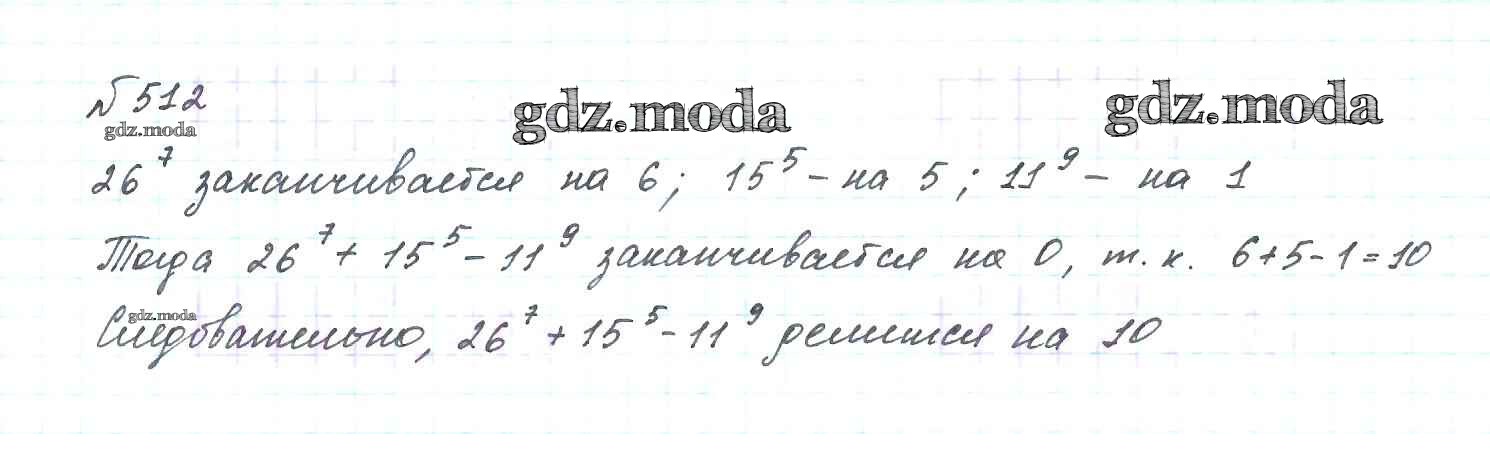 № 512
gdz.moda gdz.moda gdz.moda
26⁷ заканчивается на 6; 15⁵ - на 5; 11⁹ - на 1
Тогда 26⁷ + 15⁵ - 11⁹ заканчивается на 0, т. к. 6+5-1=10
gdz.moda
Следовательно, 26⁷ + 15⁵ - 11⁹ делится на 10